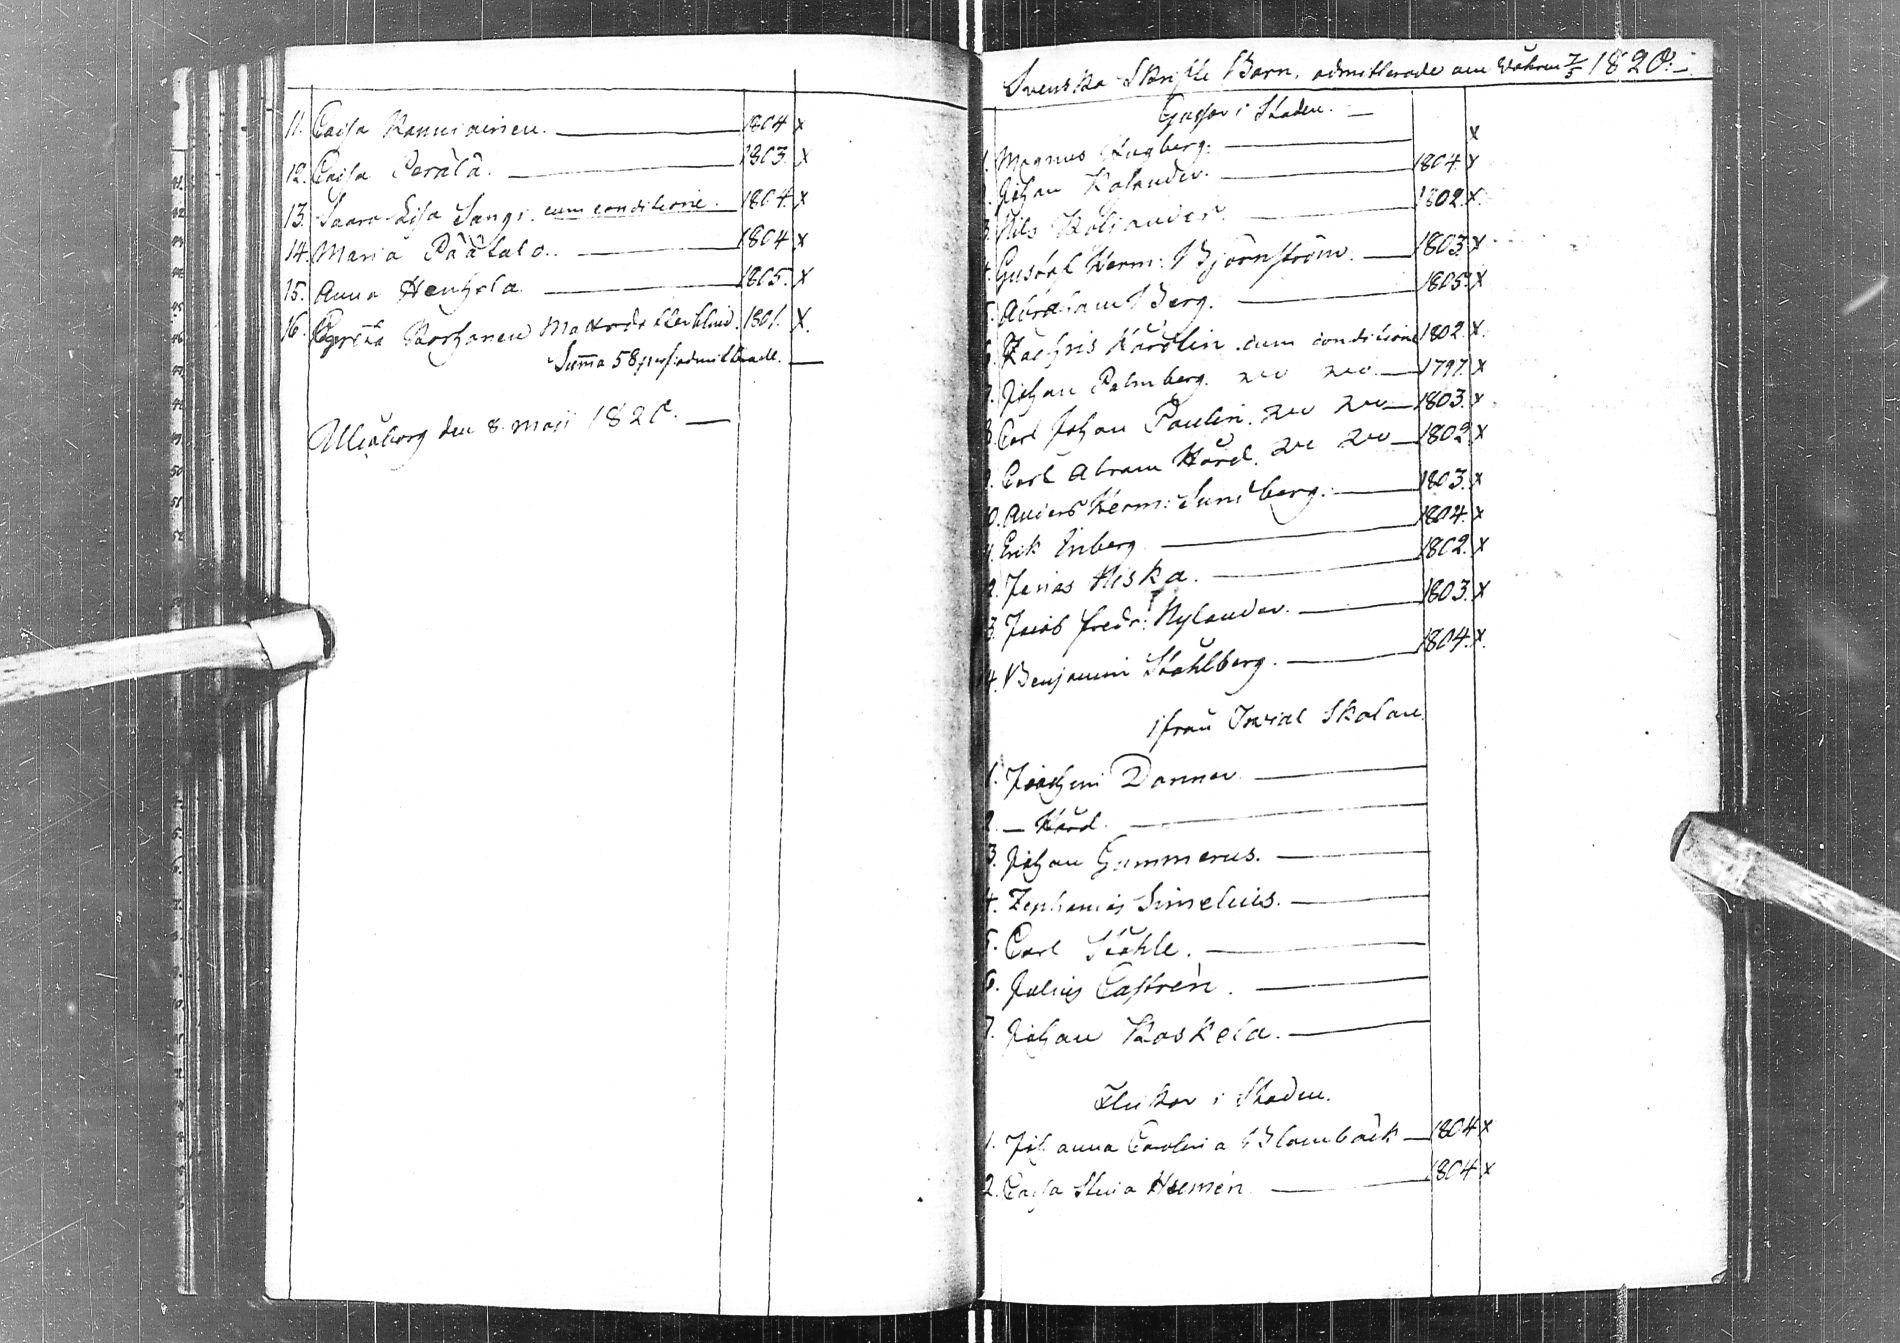 11. Caisa Ronniainen. 1804 x
12. Caisa Perälä. 1803. x
13. Saara Lisa Sangi. cum conditione. 1804. x
14. Maria Päätalo. 1804 x
15. Anna Henhola 1805. x
16. Korhonen 1801. x.
Summa 58 admitterade.
Uleåborg den 8 Maji 1820.
Svenska Skrifte Barn, admitterade om Våhren 7/5 1820.
Gossar i Staden.
1. Magnus x
Johan Kalander. 1804. x
3. Nils 1802. x
4. Gustaf Herm: Björnström. 1803. x
5. Abraham Berg. 1805. x
6. Zachris Hårdlin cum conditione 1802. x
7. Johan Palmberg. 1797. x
8. Carl Johan Paulin. 1803. x
9. Carl Abram Hård. 1802. x
10. Anders Herm: Sundberg. 1803. x
11. Erik Enberg 1804. x
12. Jonas Niska. 1802. x
13. Jacob Fredr: Nylander. 1803. x
14. Benjamin Ståhlberg. 1804. x.
ifrån Trivial Skolan
1. Joachim Donner
2. — Hård.
3. Johan Gummerus.
4. Zephanias Simelius.
5. Carl Ståhle.
6. Julius Castrén.
7. Johan Koskela.
Flickor i Staden.
1. Johanna Carolina Blombäck 1804 x
2. Caisa Stina 1804 x